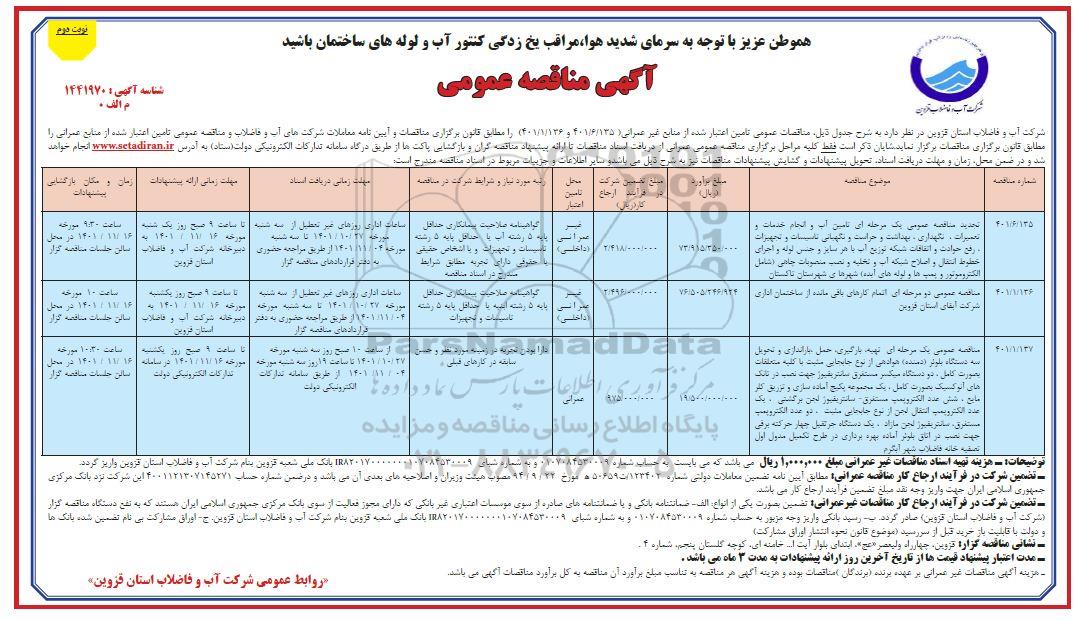 نوبت دوم
هموطن عزیز با توجه به سرمای شدید هوا،مراقب یخ زدگی کنتور آب و لوله های ساختمان باشید
آگهی مناقصه عمومی
شناسه آگهی : ۱۴۴۱۹۷۰
م الف ۰
شرکت آب و فاضلاب قزوین
شرکت آب و فاضلاب استان قزوین در نظر دارد به شرح جدول ذیل، مناقصات عمومی تامین اعتبار شده از منابع غیر عمرانی( ۴۰۱/۶/۱۳۵ و ۴۰۱/۱/۱۳۶) را مطابق قانون برگزاری مناقصات و آیین نامه معاملات شرکت های آب و فاضلاب و مناقصه عمومی تامین اعتبار شده از منابع عمرانی را
مطابق قانون برگزاری مناقصات برگزار نماید.شایان ذکر است فقط کلیه مراحل برگزاری مناقصه عمومی عمرانی از دریافت اسناد مناقصات تا ارائه پیشنهاد مناقصه گران و بازگشایی پاکت ها از طریق درگاه سامانه تدارکات الکترونیکی دولت(ستاد) به آدرس www.setadiran.ir انجام خواهد
شد و در ضمن محل، زمان و مهلت دریافت اسناد، تحویل پیشنهادات و گشایش پیشنهادات مناقصات نیز به شرح ذیل می باشدو سایر اطلاعات و جزییات مربوط در اسناد مناقصه مندرج است:
شماره مناقصه
موضوع مناقصه
مبلغ برآورد (ریال)
مبلغ تضمین شرکت در فرآیند ارجاع کار(ریال)
محل تامین اعتبار
رتبه مورد نیاز و شرایط شرکت در مناقصه
مهلت زمانی دریافت اسناد
مهلت زمانی ارائه پیشنهادات
زمان و مکان بازگشایی پیشنهادات
۴۰۱/۶/۱۳۵
تجدید مناقصه عمومی یک مرحله ای تامین آب و انجام خدمات و
تعمیرات ، نگهداری ، بهداشت و حراست و نگهبانی تاسیسات و تجهیزات
، رفع حوادث و اتفاقات شبکه توزیع آب با هر سایز و جنس لوله و اجرای
خطوط انتقال و اصلاح شبکه آب و تخلیه و نصب منصوبات چاهی (شامل
الکتروموتور و پمپ ها و لوله های آبده) شهرها ی شهرستان تاکستان
۷۳/۹۱۵/۳۵۰/۰۰۰
۲/۴۱۸/۰۰۰/۰۰۰
غیر عمرانی (داخلی)
گواهینامه صلاحیت پیمانکاری حداقل
پایه ۵ رشته آب یا حداقل پایه ۵ رشته
تاسیسات و تجهیزات و یا اشخاص حقیقی
یا حقوقی دارای تجربه مطابق شرایط
مندرج در اسناد مناقصه
ساعات اداری روزهای غیر تعطیل از سه شنبه
مورخه ۲۷ / ۱۰ / ۱۴۰۱ تا سه شنبه
مورخه ۰۴ / ۱۱ / ۱۴۰۱ از طریق مراجعه حضوری
به دفتر قراردادهای مناقصه گزار
تا ساعت ۹ صبح روز یک شنبه
مورخه ۱۶ / ۱۱ / ۱۴۰۱ به
دبیرخانه شرکت آب و فاضلاب
استان قزوین
ساعت ۹:۳۰ مورخه
۱۶ / ۱۱ / ۱۴۰۱ در محل
سالن جلسات مناقصه گزار
۴۰۱/۱/۱۳۶
مناقصه عمومی دو مرحله ای اتمام کارهای باقی مانده از ساختمان اداری
شرکت آبفای استان قزوین
۷۶/۵۰۵/۲۴۶/۹۲۴
۲/۴۹۶/۰۰۰/۰۰۰
غیر عمرانی (داخلی)
گواهینامه صلاحیت پیمانکاری حداقل
پایه ۵ رشته ابنیه یا حداقل پایه ۵ رشته
تاسیسات و تجهیزات
ساعات اداری روزهای غیر تعطیل از سه شنبه
مورخه ۲۷ / ۱۰ / ۱۴۰۱ تا سه شنبه مورخه
۰۴ / ۱۱ / ۱۴۰۱ از طریق مراجعه حضوری به دفتر
قراردادهای مناقصه گزار
تا ساعت ۹ صبح روز یکشنبه
مورخه ۱۶ / ۱۱ / ۱۴۰۱ به
دبیرخانه شرکت آب و فاضلاب
استان قزوین
ساعت ۱۰ مورخه
۱۶ / ۱۱ / ۱۴۰۱ در محل
سالن جلسات مناقصه گزار
۴۰۱/۱/۱۳۷
مناقصه عمومی یک مرحله ای تهیه، بارگیری، حمل ،باراندازی و تحویل
سه دستگاه بلوئر (دمنده) هوادهی از نوع جابجایی مثبت با کلیه متعلقات
بصورت کامل ، دو دستگاه میکسر مستغرق سانتریفیوژ جهت نصب در تانک
های آنوکسیک بصورت کامل ، یک مجموعه پکیج آماده سازی و تزریق کلر
مایع ، شش عدد الکتروپمپ مستغرق- سانتریفیوژ لجن برگشتی ، یک
عدد الکتروپمپ انتقال لجن از نوع جابجایی مثبت ، دو عدد الکتروپمپ
مستغرق، سانتریفیوژ لجن مازاد ، یک دستگاه جرثقیل چهار حرکته برقی
جهت نصب در اتاق بلوئر آماده بهره برداری در طرح تکمیل مدول اول
تصفیه خانه فاضلاب شهر آبگرم
۱۹/۵۰۰/۰۰۰/۰۰۰
۹۷۵/۰۰۰/۰۰۰
عمرانی
دارا بودن تجربه در زمینه مورد نظر و حسن
سابقه در کارهای قبلی
از ساعت ۱۰ صبح روز سه شنبه مورخه
۲۷ / ۱۰ / ۱۴۰۱ تا ساعت ۱۹روز سه شنبه مورخه
۰۴ / ۱۱ / ۱۴۰۱ از طریق سامانه تدارکات
الکترونیکی دولت
تا ساعت ۹ صبح روز یکشنبه
مورخه ۱۶ / ۱۱ / ۱۴۰۱ در سامانه
تدارکات الکترونیکی دولت
ساعت ۱۰:۳۰ مورخه
۱۶ / ۱۱ / ۱۴۰۱ در محل
سالن جلسات مناقصه گزار
ParsNamadData
مرکز فرآوری اطلاعات پارس نماد داده ها
پایگاه اطلاع رسانی مناقصه و مزایده
توضیحات: ــ هزینه تهیه اسناد مناقصات غیر عمرانی مبلغ ۱,۰۰۰,۰۰۰ ریال می باشد که می بایست به حساب شماره ۰۱۰۷۰۸۴۵۳۰۰۰۹ و به شماره شبای بانک ملی شعبه قزوین بنام شرکت آب و فاضلاب استان قزوین واریز گردد.
ــ تضمین شرکت در فرآیند ارجاع کار مناقصه عمرانی: مطابق آیین نامه تضمین معاملات دولتی شماره ۱۲۳۴۰۲/ت۵۰۶۵۹ ه مورخ ۲۲ / ۹ / ۹۴ مصوب هیئت وزیران و اصلاحیه های بعدی آن می باشد و درضمن شماره حساب ۴۰۰۱۱۲۱۳۰۷۱۴۵۲۷۱ این شرکت نزد بانک مرکزی
جمهوری اسلامی ایران جهت واریز وجه نقد مبلغ تضمین فرآیند ارجاع کار می باشد.
ــ تضمین شرکت در فرآیند ارجاع کار مناقصات غیرعمرانی: تضمین بصورت یکی از انواع: الف- ضمانتنامه بانکی و یا ضمانتنامه های صادره از سوی موسسات اعتباری غیر بانکی که دارای مجوز فعالیت از سوی بانک مرکزی جمهوری اسلامی ایران هستند که به نفع دستگاه مناقصه گزار
(شرکت آب و فاضلاب استان قزوین) صادر گردد. ب- رسید بانکی واریز وجه مزبور به حساب شماره ۰۱۰۷۰۸۴۵۳۰۰۰۹ و به شماره شبای بانک ملی شعبه قزوین بنام شرکت آب و فاضلاب استان قزوین. ج- اوراق مشارکت بی نام تضمین شده بانک ها
و دولت با قابلیت باز خرید قبل از سررسید (موضوع قانون نحوه انتشار اوراق مشارکت)
ــ نشانی مناقصه گزار: قزوین، چهارراه ولیعصر«عج»، ابتدای بلوار آیت ا... خامنه ای، کوچه گلستان پنجم، شماره ۴ .
ــ مدت اعتبار پیشنهاد قیمت ها از تاریخ آخرین روز ارائه پیشنهادات به مدت ۳ ماه می باشد .
ــ هزینه آگهی مناقصات غیر عمرانی بر عهده برنده (برندگان )مناقصات بوده و هزینه آگهی هر مناقصه به تناسب مبلغ برآورد آن مناقصه به کل برآورد مناقصات آگهی می باشد.
«روابط عمومی شرکت آب و فاضلاب استان قزوین»